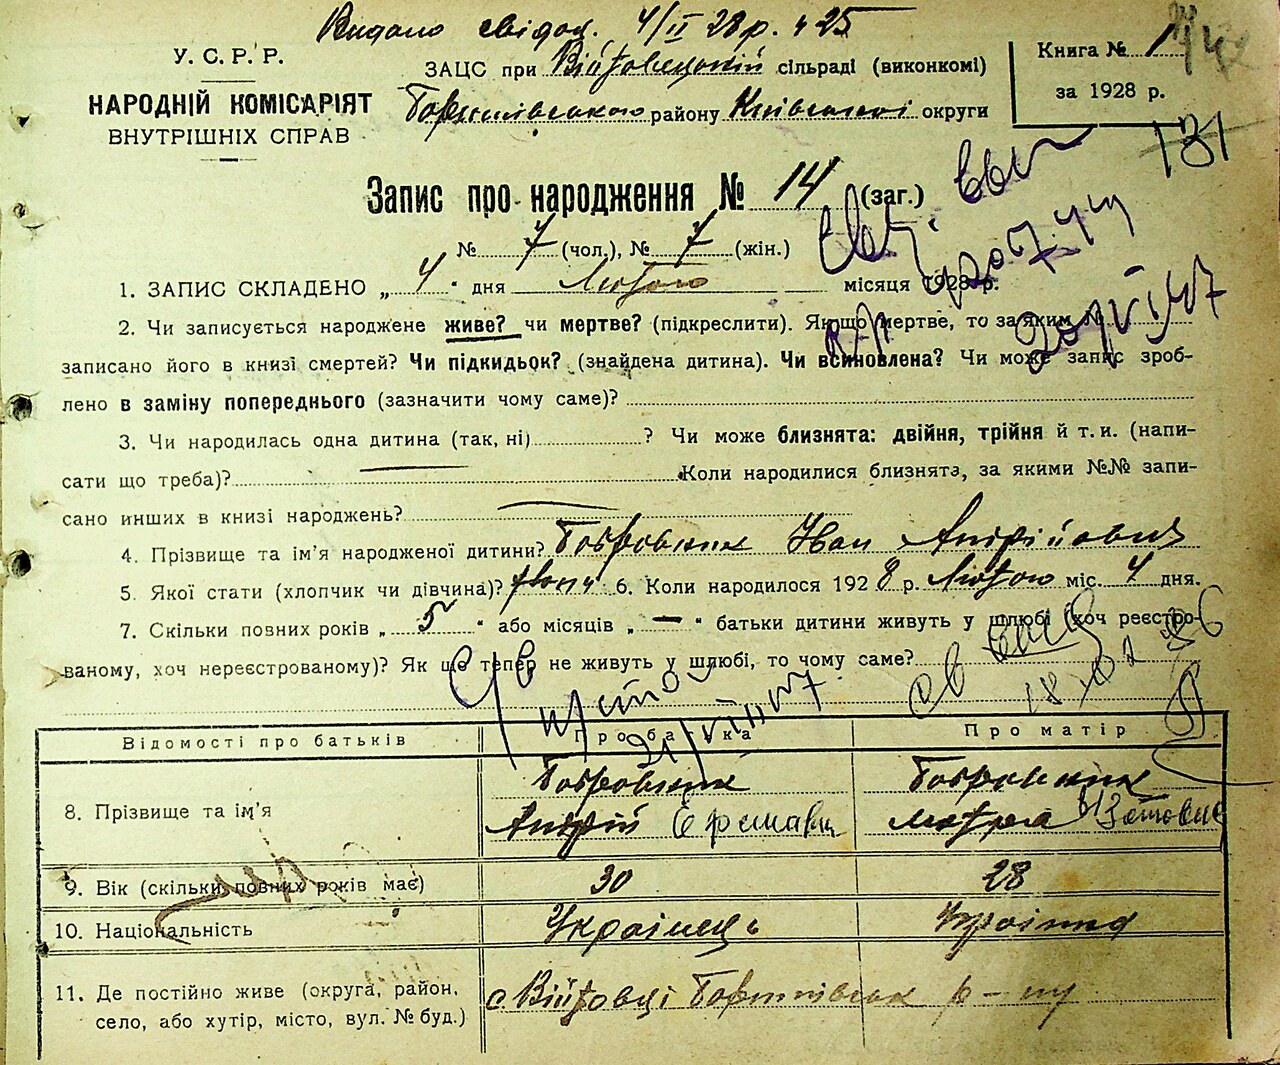 Видано свідоц. 4/II 28 р. ч 25
У. С. Р. Р.
НАРОДНІЙ КОМІСАРІЯТ
ВНУТРІШНІХ СПРАВ
ЗАЦС при Війтовецькій сільраді (виконкомі)
Бориспівського району Київської округи
Книга № 1
за 1928 р.
131
Запис про народження № 14 (заг.)
№ 7 (чол.), № 7 (жін.)
1. ЗАПИС СКЛАДЕНО „ 4 " дня Лютого місяця 1928 р.
2. Чи записується народжене живе? чи мертве? (підкреслити). Якщо мертве, то за яким №
записано його в книзі смертей? Чи підкидьок? (знайдена дитина). Чи всиновлена? Чи може запис зроб-
лено в заміну попереднього (зазначити чому саме)?
3. Чи народилась одна дитина (так, ні) ? Чи може близнята: двійня, трійня й т. и. (напи-
сати що треба)? Коли народилися близнята, за якими №№ запи-
сано инших в книзі народжень?
4. Прізвище та ім'я народженої дитини? Бобровник Іван Андрійович
5. Якої стати (хлопчик чи дівчина)? 6. Коли народилося 1928 р. Лютого міс. 4 дня.
7. Скільки повних років „ 5 " або місяців „ — " батьки дитини живуть у шлюбі (хоч реєстро-
ваному, хоч нереєстрованому)? Як що тепер не живуть у шлюбі, то чому саме?
Відомості про батьків Про батька Про матір
8. Прізвище та ім'я Бобровник Бобровник
Андрій Мотря
9. Вік (скільки повних років має) 30 28
10. Національність Українець
11. Де постійно живе (округа, район,
село, або хутір, місто, вул. № буд.) с Війтовці Бориспівськ р-ну